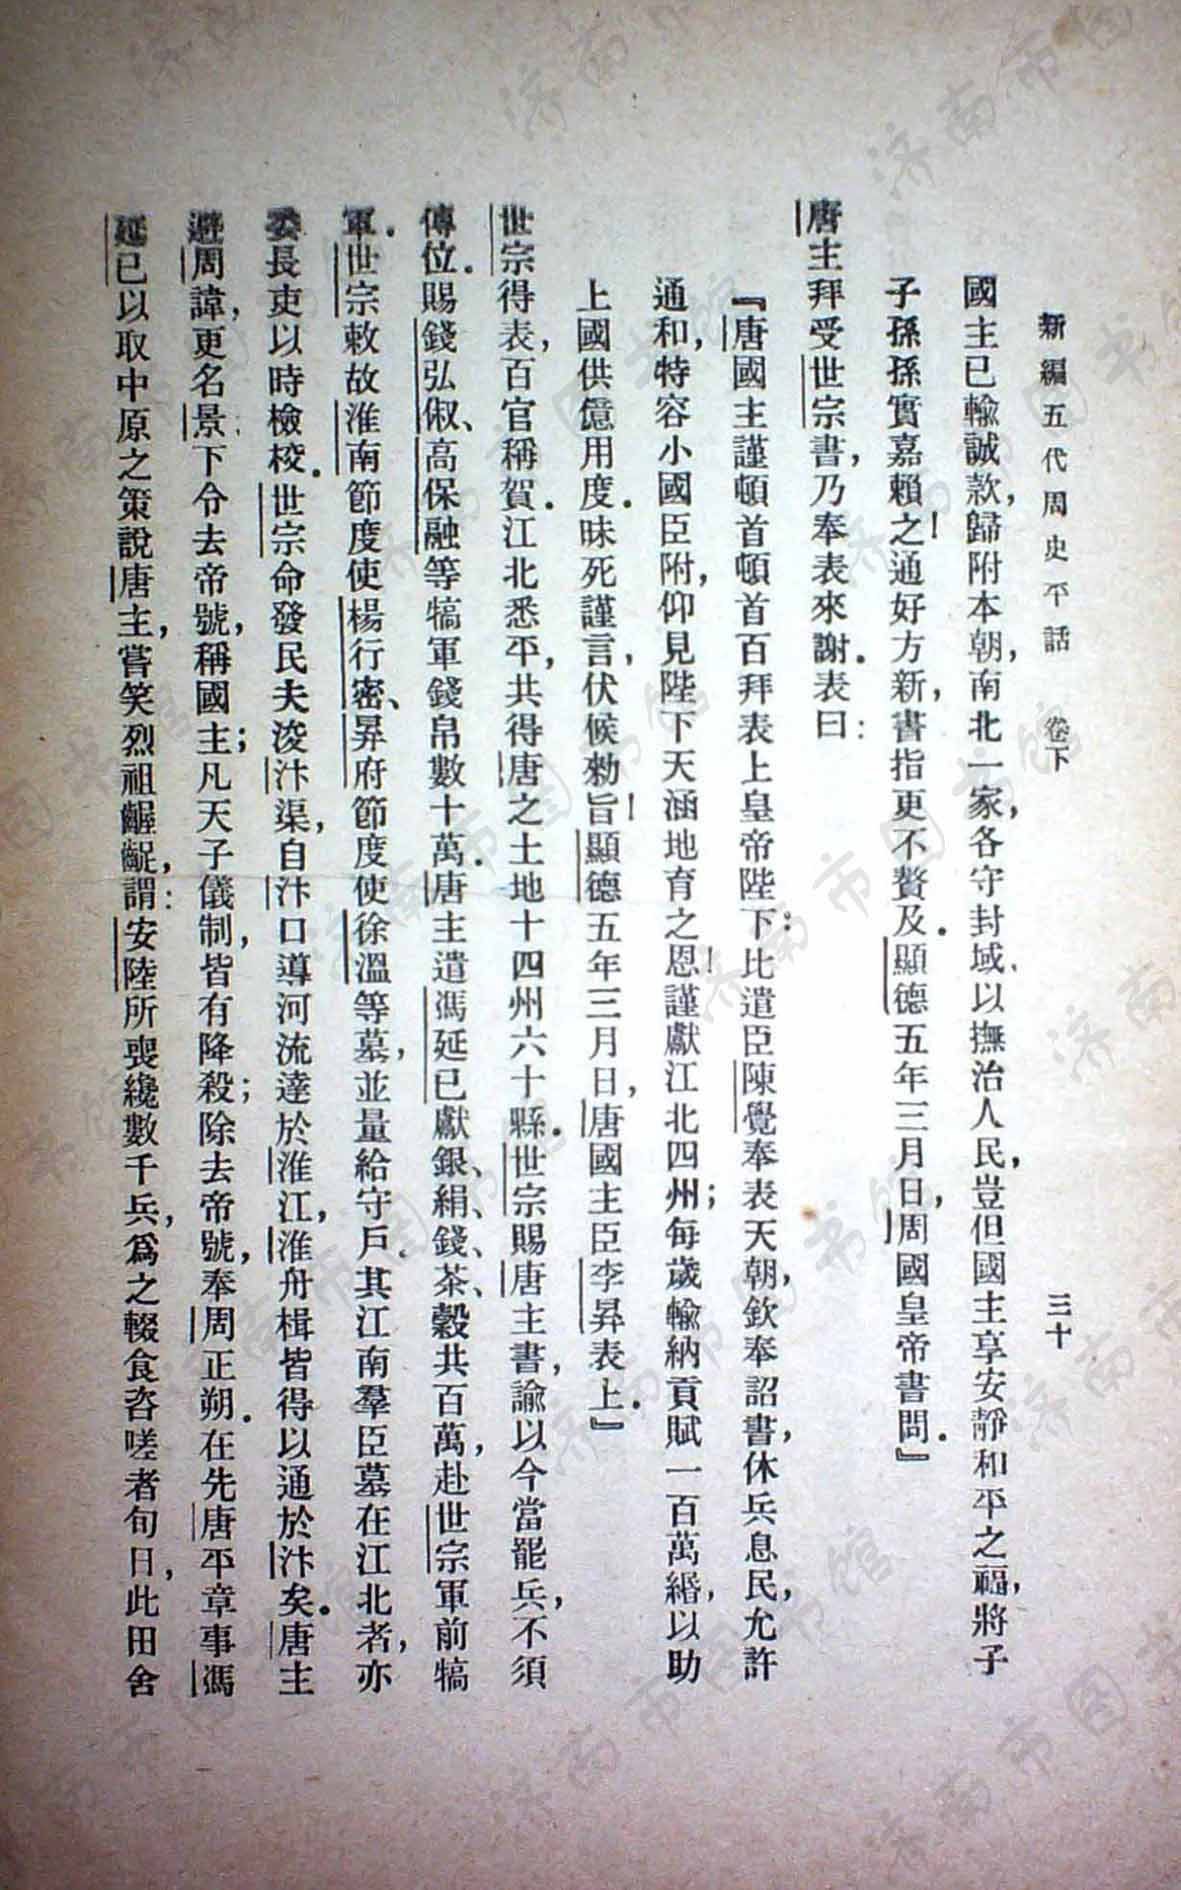 新編五代周史平話　卷下　三十
國主已輸誠款，歸附本朝，南北一家，各守封域、以撫治人民，豈但國主享安靜和平之福，將子
子孫孫實嘉賴之！通好方新，書指更不贅及．顯德五年三月日，周國皇帝書問．』
唐主拜受世宗書，乃奉表來謝．表曰：
『唐國主謹頓首頓首百拜表上皇帝陛下：比遣臣陳覺奉表天朝，欽奉詔書，休兵息民，允許
通和，特容小國臣附，仰見陛下天涵地育之恩！謹獻江北四州；每歲輸納貢賦一百萬緡，以助
上國供億用度．昧死謹言，伏候勑旨！顯德五年三月日，唐國主臣李昇表上．』
世宗得表，百官稱賀．江北悉平，共得唐之土地十四州六十縣．世宗賜唐主書，諭以今當罷兵，不須
傳位．賜錢弘俶、高保融等犒軍錢帛數十萬．唐主遣馮延已獻銀、絹、錢、茶、穀共百萬，赴世宗軍前犒
軍．世宗敕故淮南節度使楊行密、昇府節度使徐溫等墓，並量給守戶．其江南羣臣墓在江北者，亦
委長吏以時檢校．世宗命發民夫浚汴渠，自汴口導河流達於淮江，淮舟楫皆得以通於汴矣．唐主
避周諱，更名景．下令去帝號，稱國主；凡天子儀制，皆有降殺；除去帝號，奉周正朔．在先唐平章事馮
延已以取中原之策說唐主，嘗笑烈祖齷齪，謂：安陸所喪纔數千兵，爲之輟食咨嗟者旬日，此田舍
济南市图书馆